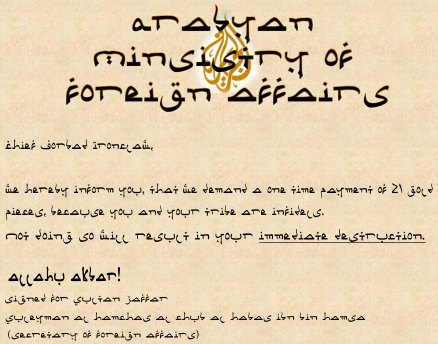 arabyan
minsistry of
foreign affairs
Chief Jorbad Ironclaw,
We hereby inform you, that we demand a one time payment of 21 gold
pieces, because you and your tribe are infidels.
Not doing so will result in your immediate destruction.
Allahu Akbar!
signed for Sultan Jaffar
Suleyman al hamchas al chub al habas ibn bin hamsa
(secretary of foreign affairs)